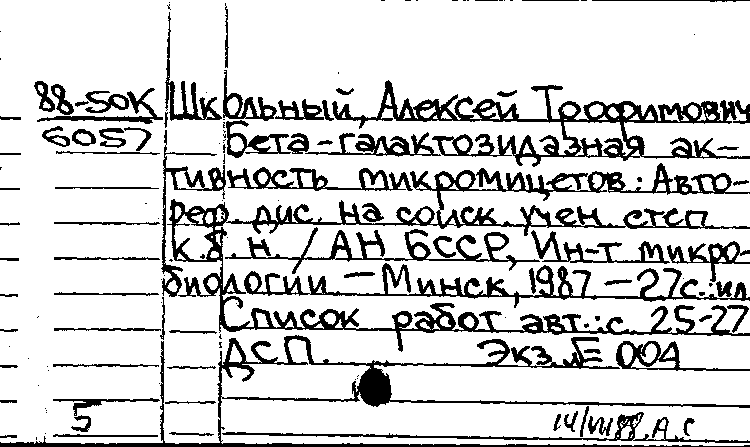 88-50К Школьный, Алексей Трофимович
6057 Бета-галактозидазная ак-
тивность микромицетов: Авто-
реф. дис. на соиск. учен. степ
к.б.н. / АН БССР, Ин-т микро-
биологии. — Минск, 1987. — 27с.:ил
Список работ авт.: с. 25-27
ДСП. Экз. № 004
5 14/VII88. А.С